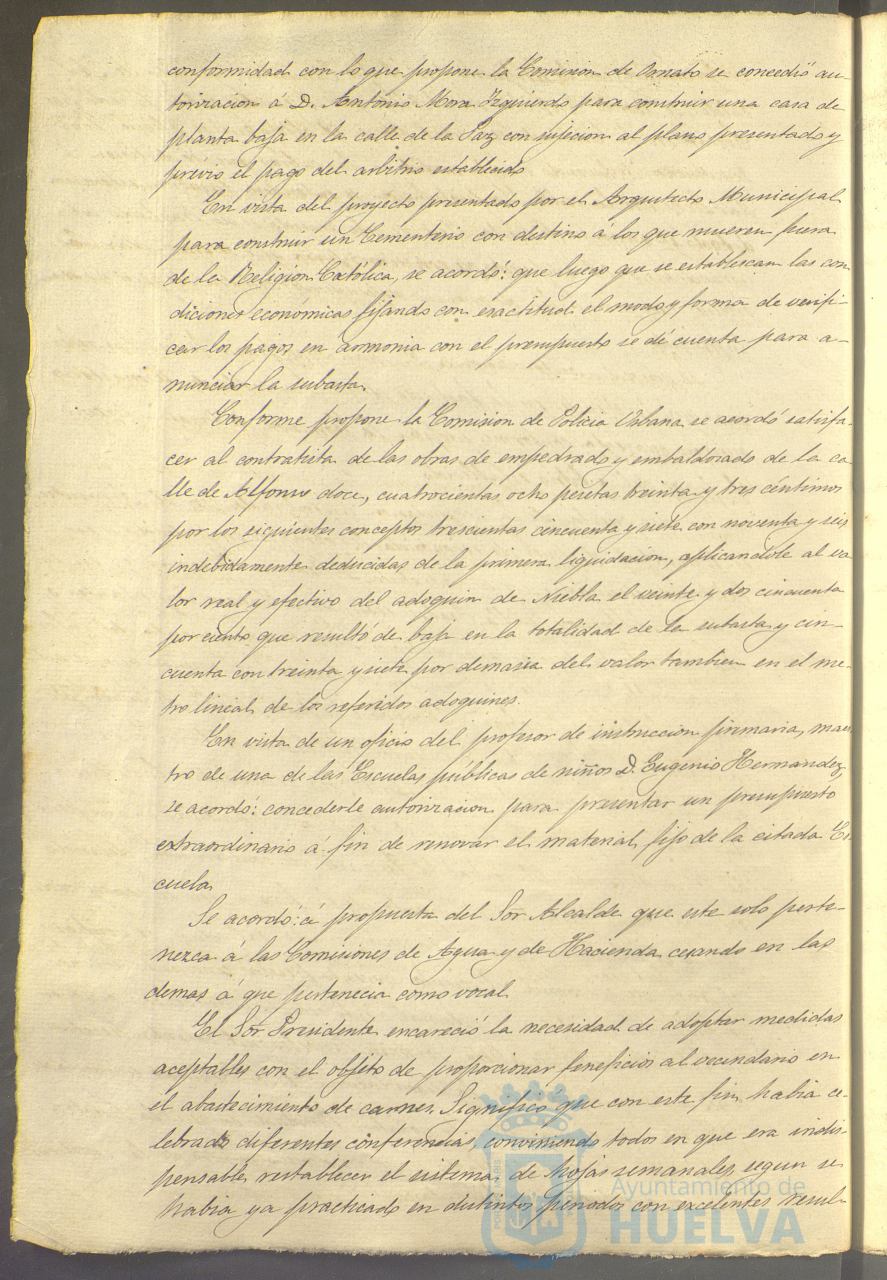 conformidad con lo que propone la Comision de Ornato se concedió au-
torizacion á D. Antonio Mora Izquierdo para construir una casa de
planta baja en la calle de la Paz con sujecion al plano presentado y
prévio el pago del arbitrio establecido
En vista del proyecto presentado por el Arquitecto Municipal
para construir un Cementerio con destino á los que mueren fuera
de la Religion Católica, se acordó: que luego que se establezcan las con
diciones económicas fijando con exactitud el modo y forma de verifi-
car los pagos en armonia con el presupuesto se dé cuenta para a-
nunciar la subasta.
Conforme propone la Comision de Policia Urbana se acordó satisfa-
cer al contratista de las obras de empedrado y embaldosado de la ca
lle de Alfonso doce, cuatrocientas ocho pesetas treinta y tres céntimos
por los siguientes conceptos trescientas cincuenta y siete con noventa y seis
indebidamente deducidas de la primera liquidacion, aplicandole al va
lor real y efectivo del adoquin de Niebla el veinte y dos cincuenta
por ciento que resultó de baja en la totalidad de la subasta y cin-
cuenta con treinta y siete por demasia del valor tambien en el me-
tro lineal de los referidos adoquines.
En vista de un oficio del profesor de instruccion primaria, maes
tro de una de las Escuelas públicas de niños D. Eugenio Hernandez,
se acordó: concederle autorizacion para presentar un presupuesto
extraordinario á fin de renovar el material fijo de la citada Es
cuela.
Se acordó: á propuesta del Sor Alcalde que este solo perte-
nezca á las Comisiones de Agua y de Hacienda cesando en las
demas á que pertenecia como vocal.
El Sor Presidente encareció la necesidad de adoptar medidas
aceptables con el objeto de proporcionar beneficios al vecindario en
el abastecimiento de carnes. Significó que con este fin habia ce-
lebrado diferentes conferencias, conviniendo todos en que era indis-
pensable restablecer el sistema de hojas semanales segun se
habia ya practicado en distintos periodos con excelentes resul-
Ayuntamiento de
HUELVA